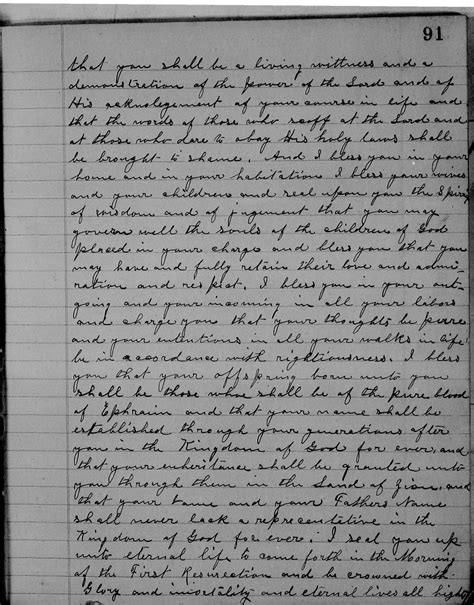 91
that you shall be a living wittness and a
demonstration of the power of the Lord and of
His acknolegement of your course in life and
that the words of those who scoff at the Lord and
at those who dare to obay His holy laws shall
be brought to shame. And I bless you in your
home and in your habitation I bless your wives
and your children and seal upon you the Spirit
of wisdom and of jugement that you may
govern well the souls of the children of God
placed in your charge and bless you that you
may have and fully retain their love and admi-
ration and respect. I bless you in your out-
going and your incoming in all your labors
and charge you that your thoughts be pure
and your intentions in all your walks in life
be in accordance with rightiousness. I bless
you that your offspring born unto you
shall be those whoe shall be of the pure blood
of Ephraim and that your name shall be
established through your generations after
you in the Kingdom of God for ever, and
that your enheritance shall be granted unto
you through them in the Land of Zion, and
that your name and your Fathers Name
shall never lack a reprecentative in the
Kingdom of God for ever. I seal you up
unto eternal life to come forth in the Morning
of the First Resurection and be crowned with
Glory and imortality and eternal lives all high